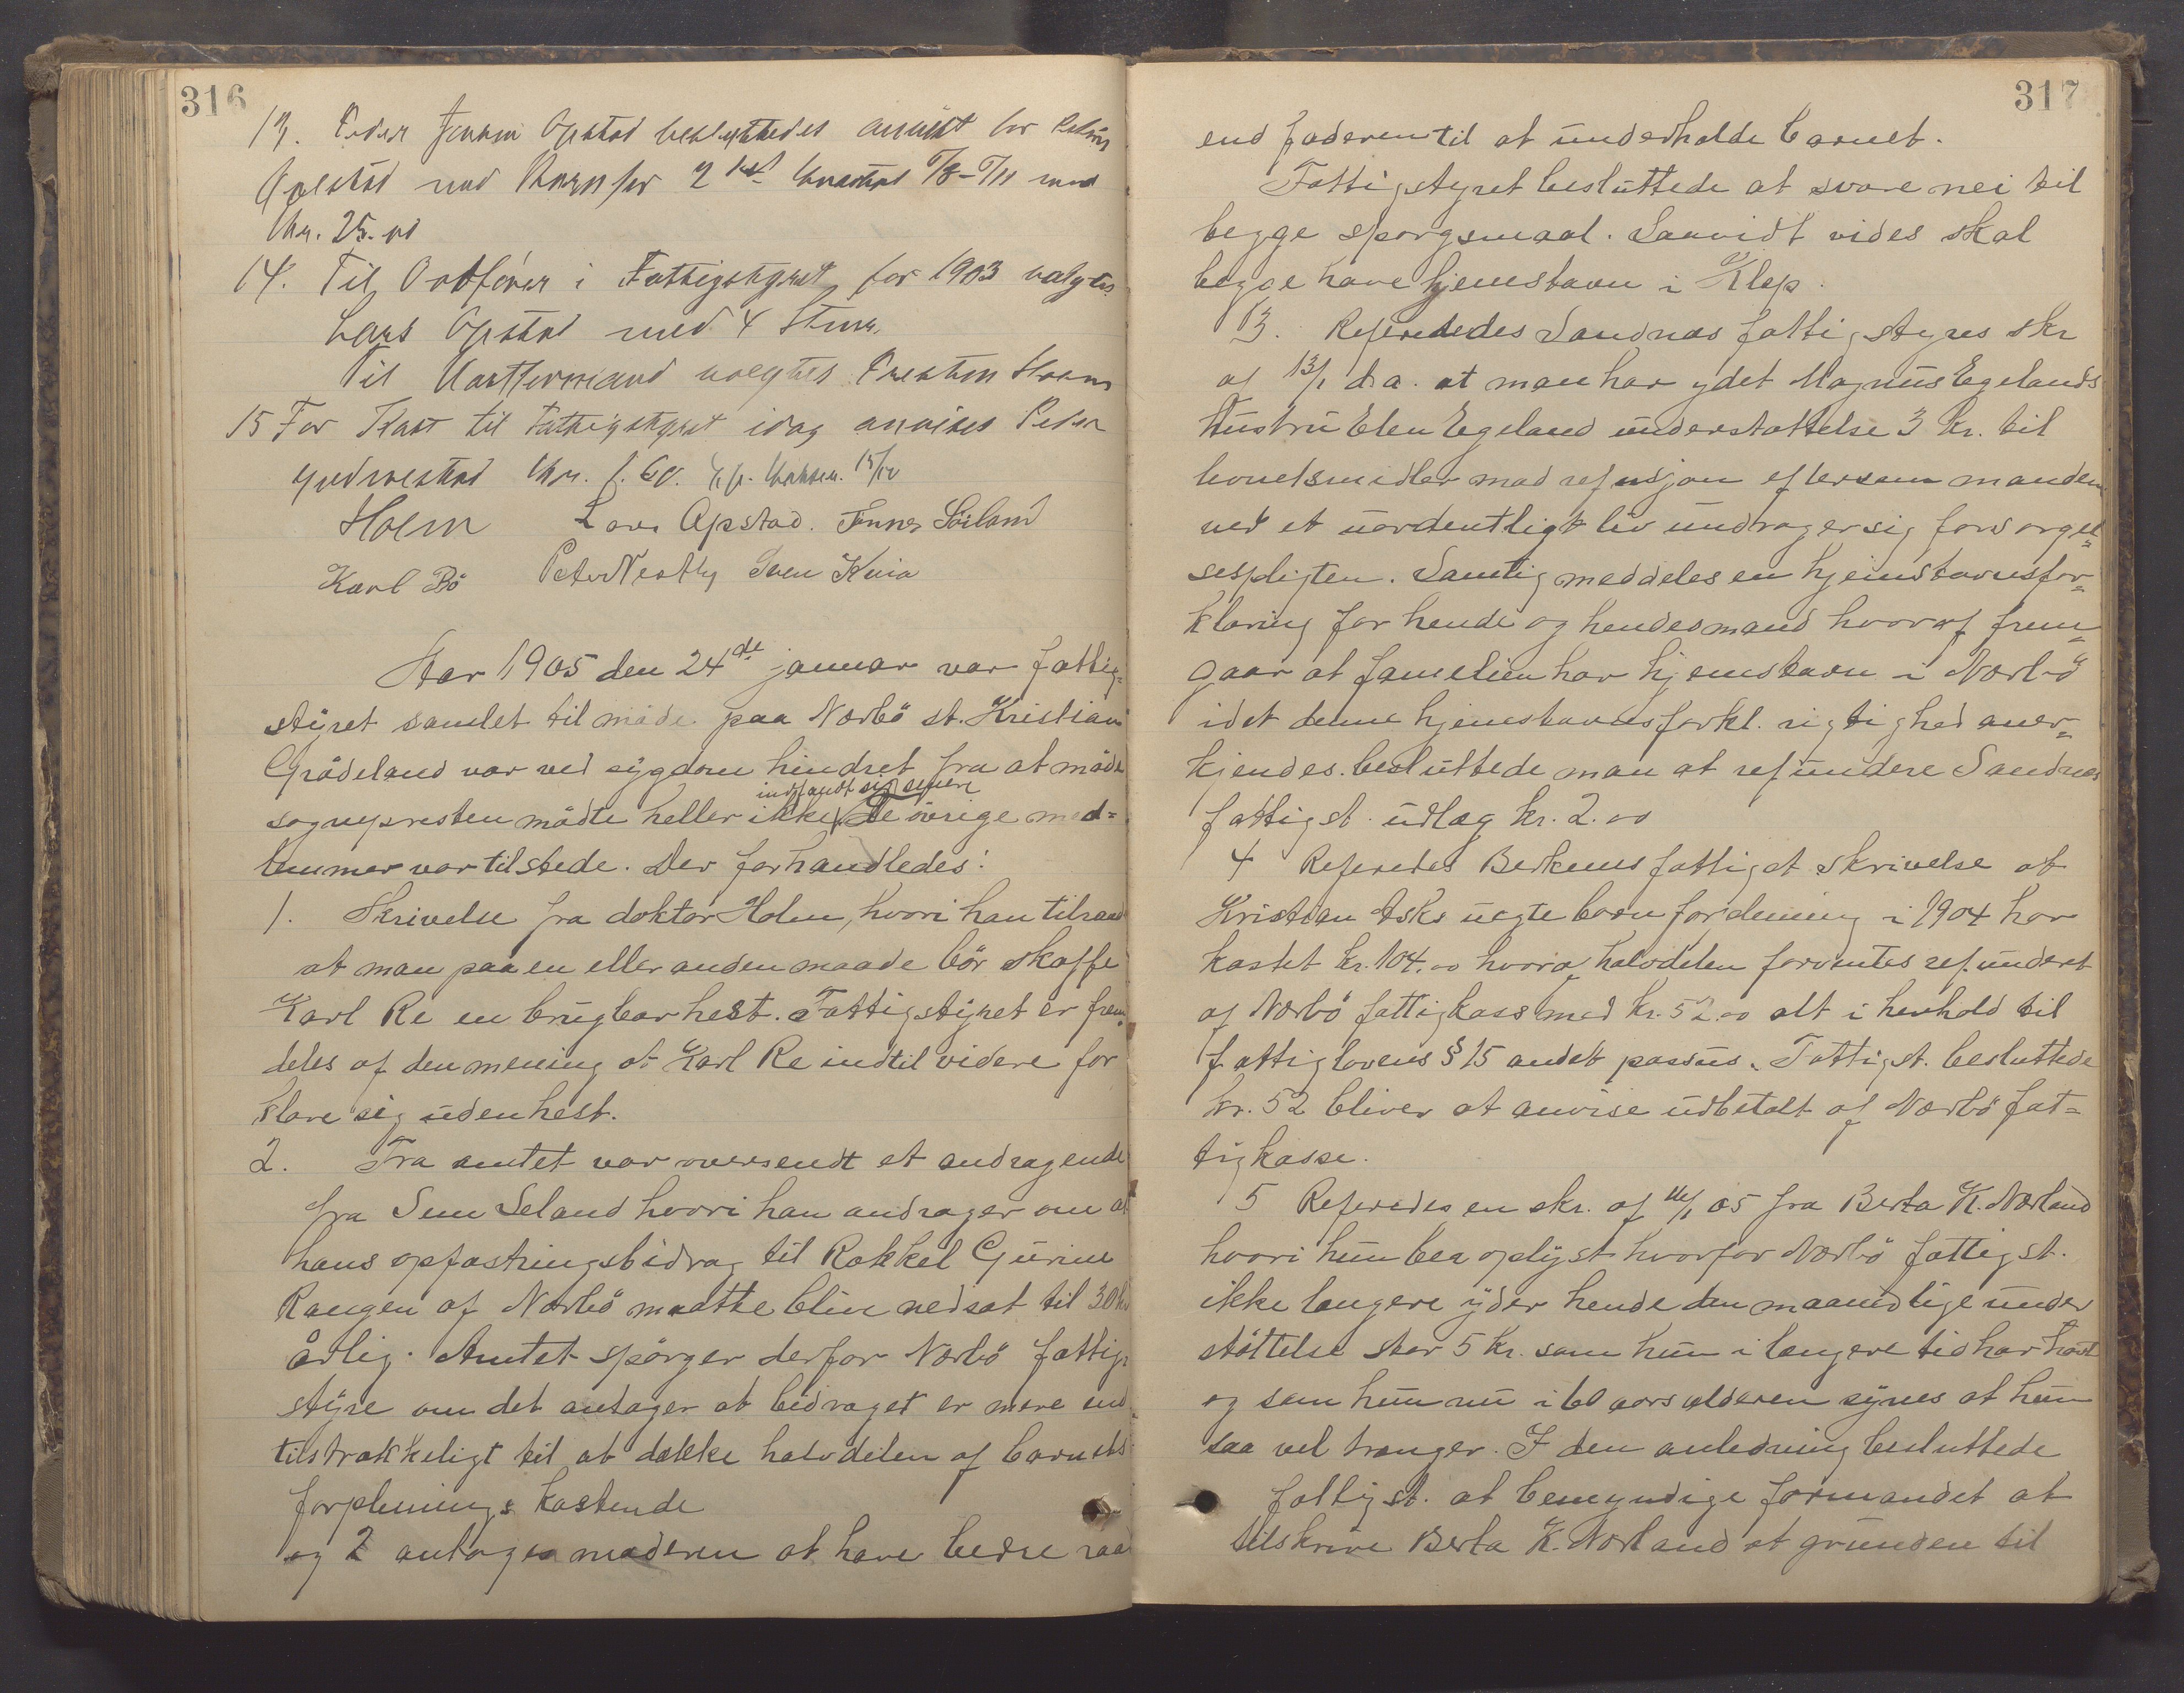 316
13. Peder Jensen Opstad besluttedes anvist for
Opstad med Barn for 2det kvartal 5/8-5/11 med
Kr. 25.00
14. Til Ordfører i Fattigstyret for 1903 valgtes
Lars Opstad med 4 Stem.
Til Varaformand valgtes Presten Holm
15 For Kost til Fattigstyret idag anvises Peder
Kr. 1.60. 15/12
Holm Lars Opstad. Tønnes Söiland
Karl Bö Peter Nesthy Sven Kvia
Aar 1905 den 24de januar var fattig-
styret samlet til möde paa Nærbö st. Kristian
Grödeland var ved sygdom hindret fra at möde
indfandt sig senere
sognepresten mödte heller ikke. De övrige med-
lemmer var tilstede. Der forhandledes:
1. Skrivelse fra doktor Holm, hvori han tilraad
at man paa en eller anden maade bör skaffe
Karl Re en brugbar hest. Fattigstyret er frem-
deles af den mening at Karl Re indtil videre for
klare sig uden hest.
2. Fra amtet var oversendt et andragende
fra Sem Seland hvori han andrager om at
hans opfostringsbidrag til Rakkel Gurine
Rangen af Nærbö maatte blive nedsat til 30 kr
årlig. Amtet spörger derfor Nærbö fattig-
styre om det antager at bidraget er mere end
tilstrækkeligt til at dække halvdelen af barnets
forpleinings kostende
og 2 antages moderen at have bedre raad
317
end faderen til at underholde barnet.
Fattigstyret besluttede at svare nei til
begge spørgsmaal. Saavidt vides skal
begge have hjemstavn i Klep.
3. Referededes Sandnæs fattigstyres skr
af 13/1 d.a. at man har ydet Magnus Egelands
Hustru Elen Egeland understøttelse 3 kr. til
levnetsmidler mod refusjon eftersom manden
ved et uordentligt liv undrager sig forsørgel-
sespligten. Samtig meddeles en hjemstavnsfor-
klaring for hende og hendes mand hvoraf frem-
gaar at familien har hjemstavn i Nærbö
idet denne hjemstavnsforkl. rigtighed aner-
kjendes. besluttede man at refundere Sandnes
fattigst. udlæg kr. 2.00
4 Referedes Berkems fattigst skrivelse at
Kristian Asks uegte barn fordeming i 1904 har
kostet kr. 104.00 hvora halvdelen forventes refunderet
af Nærbö fattigkasse med kr. 52.00 alt i henhold til
fattiglovens § 15 andet passus. Fattigst. besluttede
kr. 52 bliver at anvise udbetalt af Nærbö fat-
tigkasse.
5 Referedes en skr. af 16/1 05 fra Berta K. Nærland
hvori hun ber oplyst hvorfor Nærbö fattigst.
ikke længere yder hende den maanedlige under
stöttelse stor 5 kr. som hun i længere tid har havt
og som hun nu i 60 aars alderen synes at hun
saa vel trænger. I den anledning besluttede
fattigst. at bemyndige formandet at
tilskrive Berta K. Nærland at grunden til